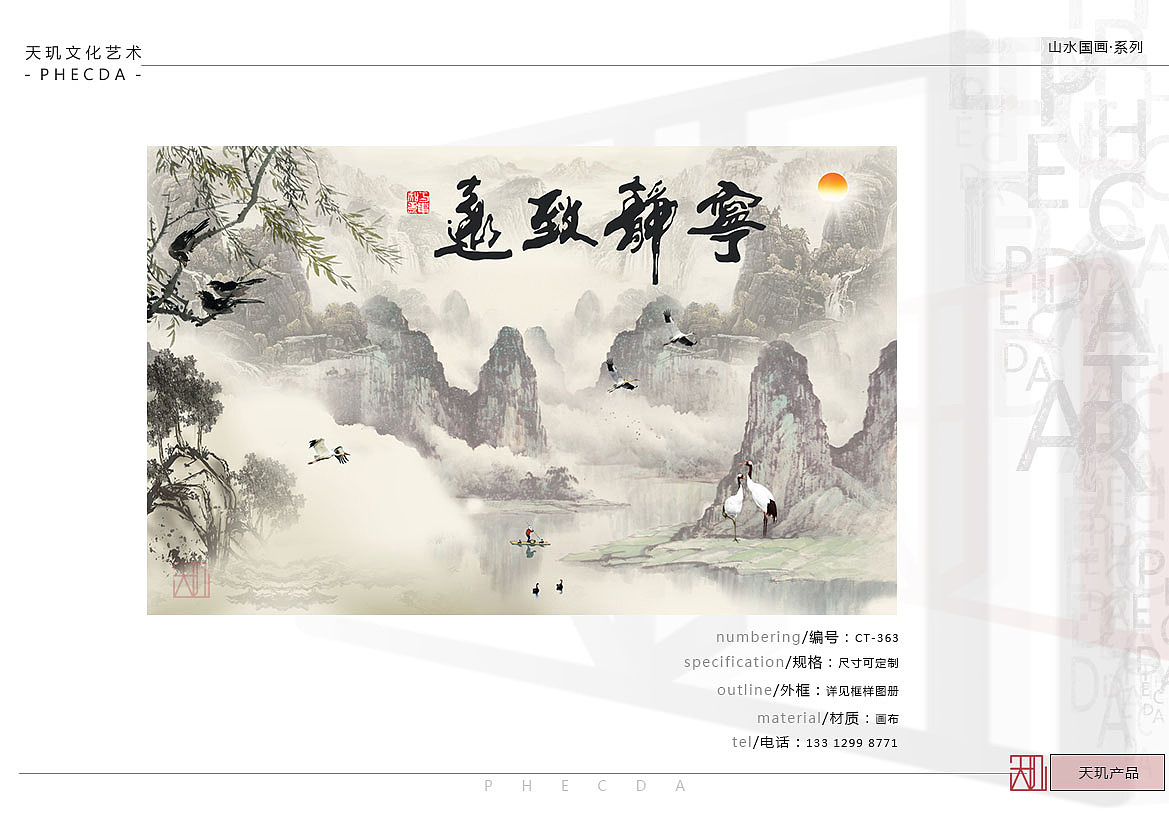 天玑文化艺术
- PHECDA -
山水国画·系列
寧靜致遠
numbering/编号：CT-363
specification/规格：尺寸可定制
outline/外框：详见框样图册
material/材质：画布
tel/电话：133 1299 8771
PHECDA
天玑
天玑产品